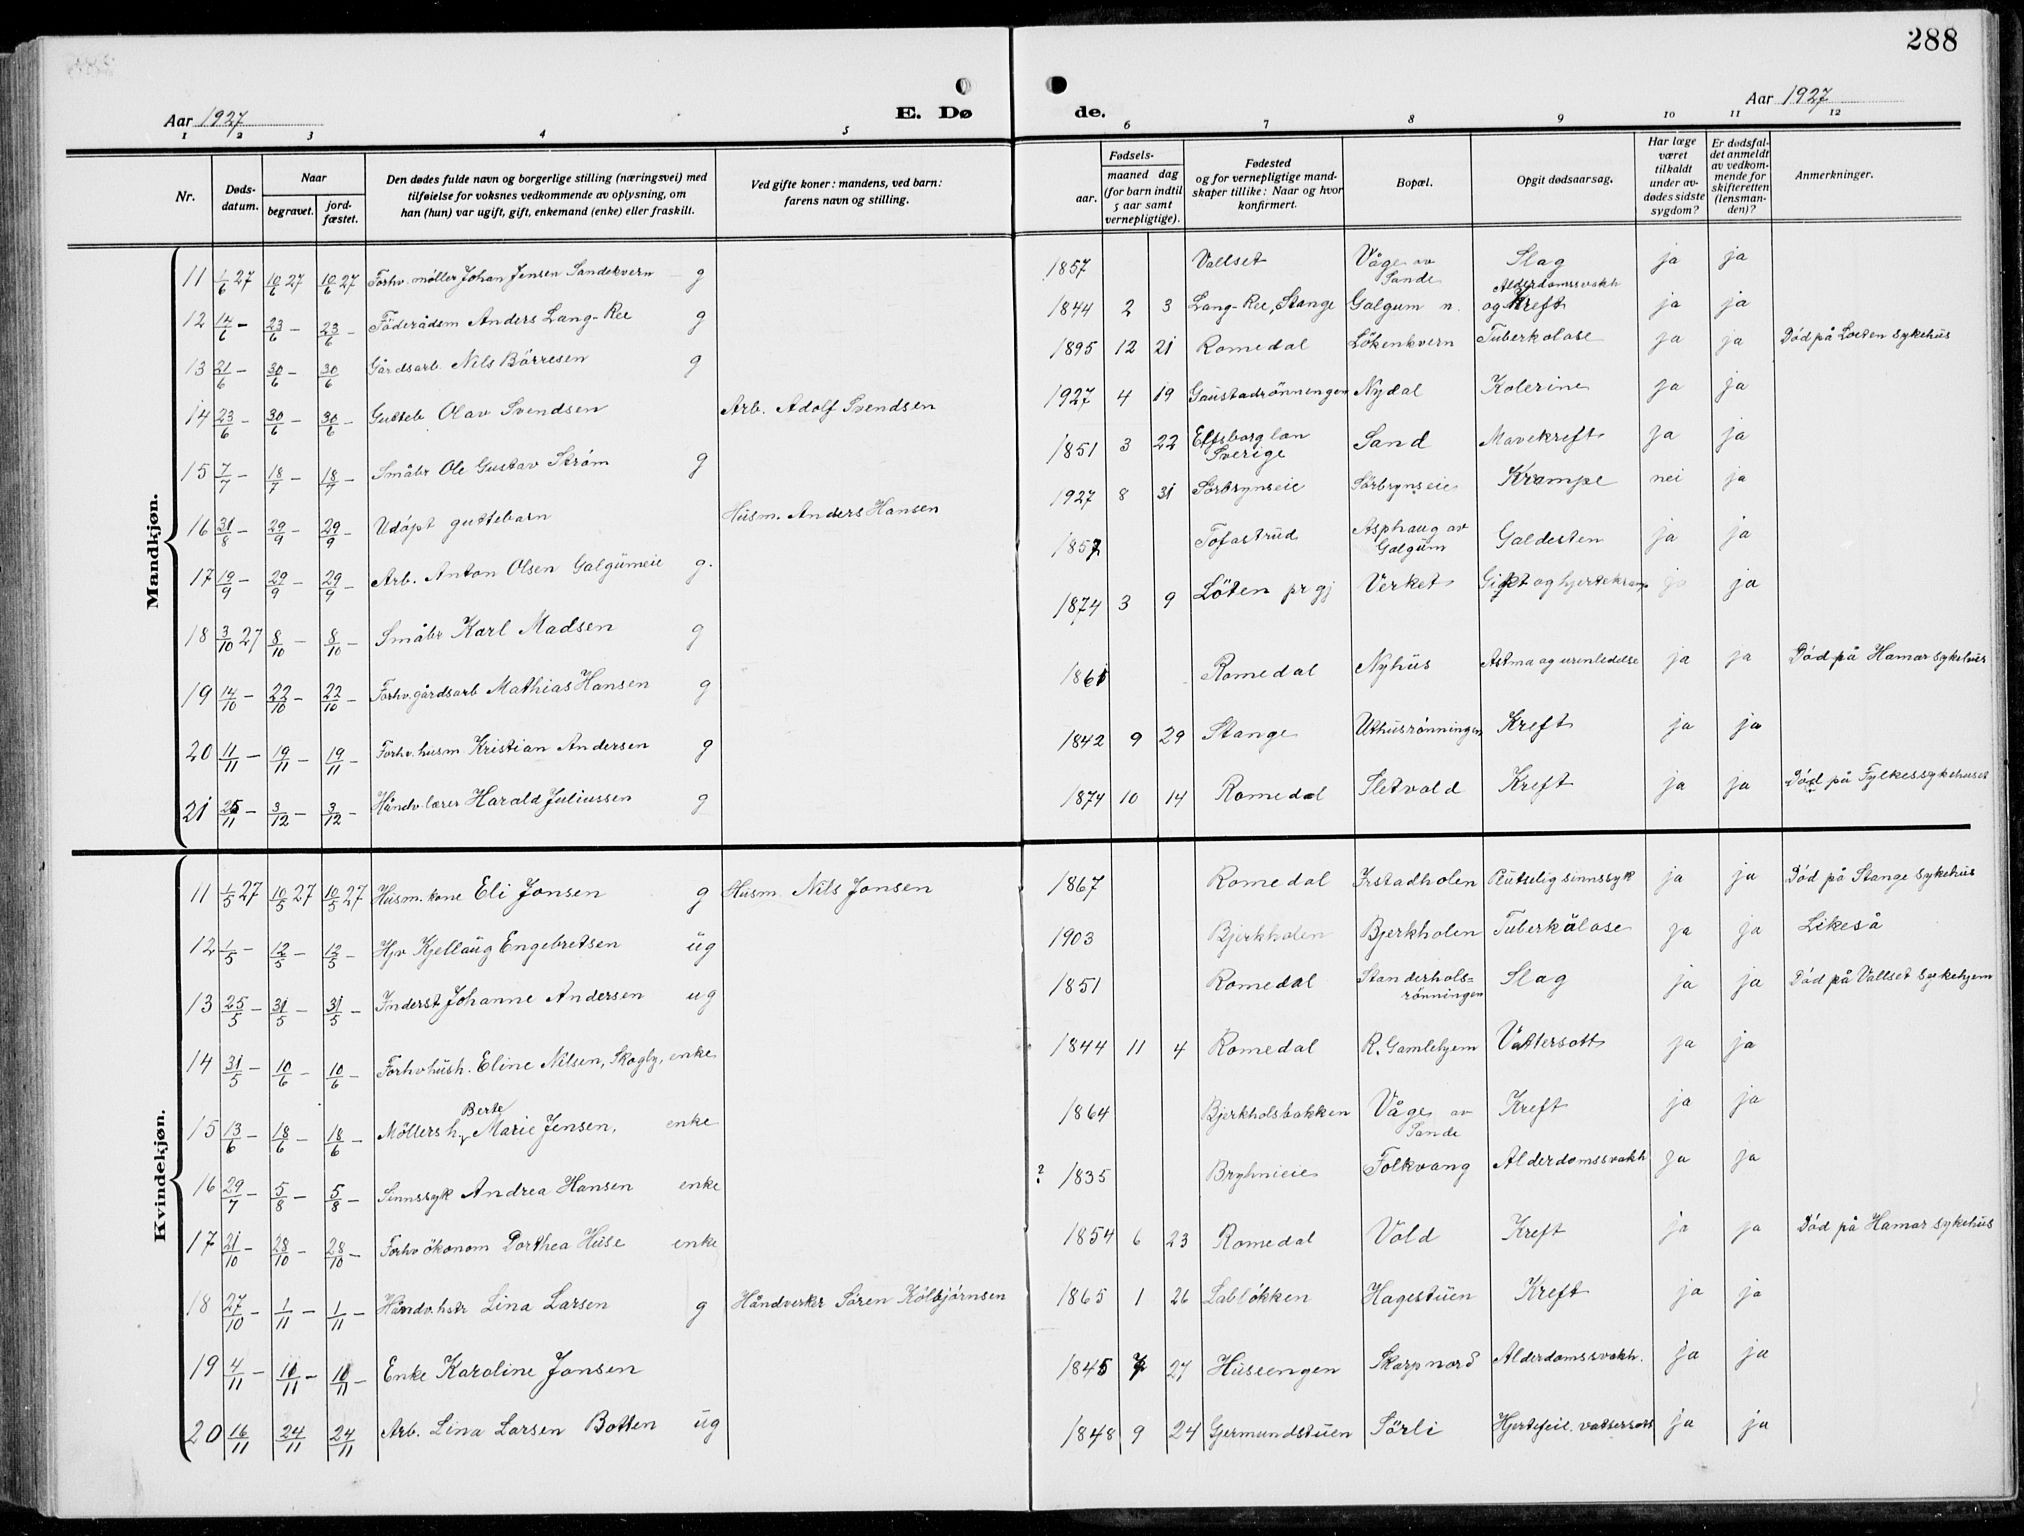 288
Aar 1927 E. Dø de. Aar 1927
1 2 3 4 5 6 7 8 9 10 11 12
Nr. Døds-datum. Naar begravet. jord-fæstet. Den dødes fulde navn og borgerlige stilling (næringsvei) med tilføielse for voksnes vedkommende av oplysning, om han (hun) var ugift, gift, enkemand (enke) eller fraskilt. Ved gifte koner: mandens, ved barn: farens navn og stilling. Fødsels- aar. maaned dag (for barn indtil 5 aar samt vernepligtige). Fødested og for vernepligtige mand-skaper tillike: Naar og hvor konfirmert. Bopæl. Opgit dødsaarsag. Har læge været tilkaldt under av-dødes sidste sygdom? Er dødsfal-det anmeldt av vedkom-mende for skifteretten (lensman-den)? Anmerkninger.
Mandkjøn.
11 1/6 27 10/6 27 10/6 27 Forhv. møller Johan Jensen Sandekvern g 1857 Vallset Våge av Sande Slag ja ja
12 14/6 – 23/6 – 23/6 – Föderådsm Anders Lang-Ree g 1844 2 3 Lang-Ree, Stange Galgum n. Alderdomssvakh og Kreft ja ja
13 21/6 – 30/6 – 30/6 Gårdsarb. Nils Börresen g 1895 12 21 Romedal Lökenkvern Tuberkolose ja ja Död på Loeten sykehus
14 23/6 – 30/6 – 30/6 – Gutteb Olav Svendsen Arb. Adolf Svendsen 1927 4 19 Gaustadrönningen Nydal Kolerine ja ja
15 7/7 – 18/7 – 18/7 – Småbr Ole Gustav Ström g 1851 3 22 Elfsborg lan Sverige Sand Mavekreft ja ja
16 31/8 – 29/9 – 29/9 – Udöpt guttebarn Husm. Anders Hansen 1927 8 31 Sörbrynseie Sörbrynseie Krampe nei ja
17 19/9 – 29/9 – 29/9 – Arb. Anton Olsen Galgumeie g. 1857 Tofastrud Asphaug av Galgum Galdesten ja ja
18 3/10 27 8/10 – 8/10 – Småbr Karl Madsen g 1874 3 9 Löten pr gj Verket Gigt og hjertekramp ja ja
19 14/10 – 22/10 – 22/10 – Forhv. gårdsarb Mathias Hansen g 1861 Romedal Nyhus Astma og urinledelse ja ja Död på Hamar sykehus
20 11/11 – 19/11 – 19/11 – Forhv. husm Kristian Andersen g 1842 9 29 Stange Uthusrönningen Kreft ja ja
21 25/11 – 3/12 – 3/12 – Håndv. lærer Harald Juliussen g 1874 10 14 Romedal Sletvold Kreft ja ja Död på Fylkessykehuset
Kvindekjøn.
11 1/5 27 10/5 27 10/5 27 Husm. kone Eli Jonsen g Husm. Nils Jonsen 1867 Romedal Irstadholen Plutselig sinnssyk ja ja Död på Stange sykehus
12 1/5 – 12/5 – 12/5 – Hjv Kjellaug Engebretsen ug 1903 Bjerkholen Bjerkholen Tuberkulose ja ja Likeså
13 25/5 – 31/5 – 31/5 – Inderst Johanne Andersen ug 1851 Romedal Standerhols-rönningen Slag ja ja Död på Vallset sykehjem
14 31/5 – 10/6 – 10/6 – Forhv hush. Eline Nilsen, Skogby, enke 1844 11 4 Romedal R. Gamlehjem Vattersott ja ja
15 13/6 – 18/6 – 18/6 – Möllers h. Berte Marie Jensen, enke 1864 Bjerkholsbakken Våge av Sande Kreft ja ja
16 29/7 – 5/8 – 5/8 – Sinnssyk Andrea Hansen enke ? 1835 Bryhnieie Folkvang Alderdomssvakh ja ja
17 21/10 – 28/10 – 28/10 – Forhv ökonom Dorthea Huse enke 1854 6 23 Romedal Vold Kreft ja ja Död på Hamar sykehus
18 27/10 – 1/11 – 1/11 – Håndv. hstr Lina Larsen g Håndverker Sören Kolbjörnsen 1865 1 26 Lablökken Hagestuen Kreft ja ja
19 4/11 – 10/11 – 10/11 – Enke Karoline Jonsen 1845 7 27 Huseengen Skarpnord Alderdomssvakh. ja ja
20 16/11 24/11 24/11 Arb. Lina Larsen Botten ug 1848 9 24 Germundstuen Sörli Hjertefeil. vattersott ja ja